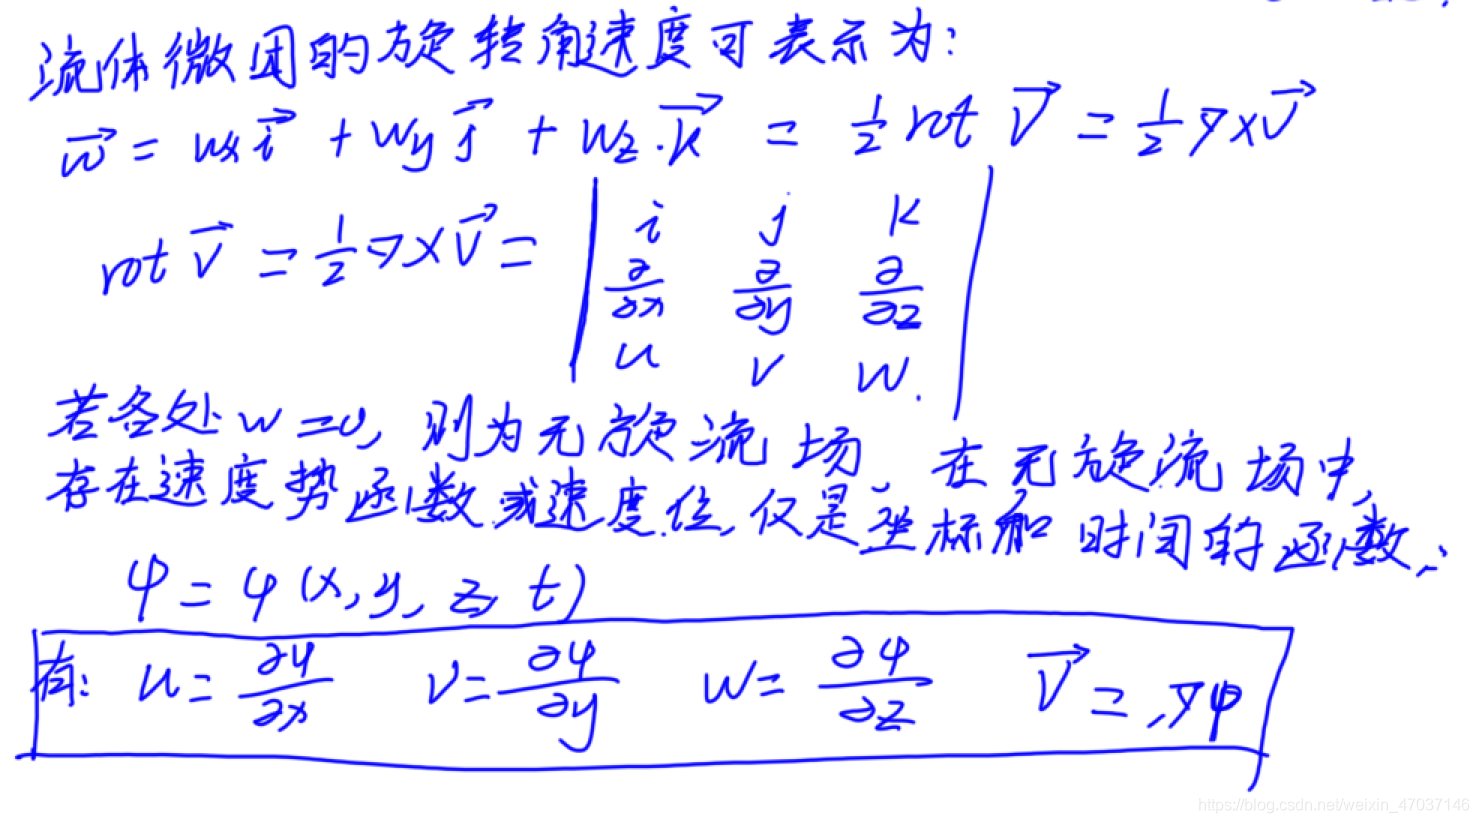 流体微团的旋转角速度可表示为:
w⃗ = wx i⃗ + wy j⃗ + wz · k⃗ = 1/2 rot V⃗ = 1/2 ∇×V⃗
rot V⃗ = 1/2 ∇×V⃗ = | i j k
∂/∂x ∂/∂y ∂/∂z
u v w. |
若各处 w=0, 则为无旋流场. 在无旋流场中,
存在速度势函数或速度位, 仅是坐标和时间的函数,
φ = φ(x, y, z, t)
有: u = ∂φ/∂x v = ∂φ/∂y w = ∂φ/∂z V⃗ = ∇φ
https://blog.csdn.net/weixin_47037146